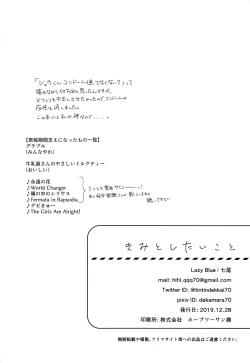 「ジョウくんコンドーム使ってなくない？」って
描きながら4万回は思ったんですが、
どうしても中出しさせたかったのでコンドームの
存在は消しました。
この本では私が神なので……。
【原稿期間支えになったもの一覧】
グラブル
(みんなやれ)
牛乳屋さんのやさしいミルクティー
(おいしい)
♪永遠の花
♪World Changer
♪瓶の中のシリウス
♪Fermata in Rapsodia
♪デビきゅー
♪The Girls Are Alright!
きみとしたいこと
Lazy Blue / 七尾
mail: hihi.qqq70@gmail.com
Twitter ID: @tintindekkai70
pixiv ID: dekamara70
発行日: 2019.12.28
印刷所: 株式会社 ホープツーワン様
無断転載や複製、フリマサイト等への出品はご遠慮ください。